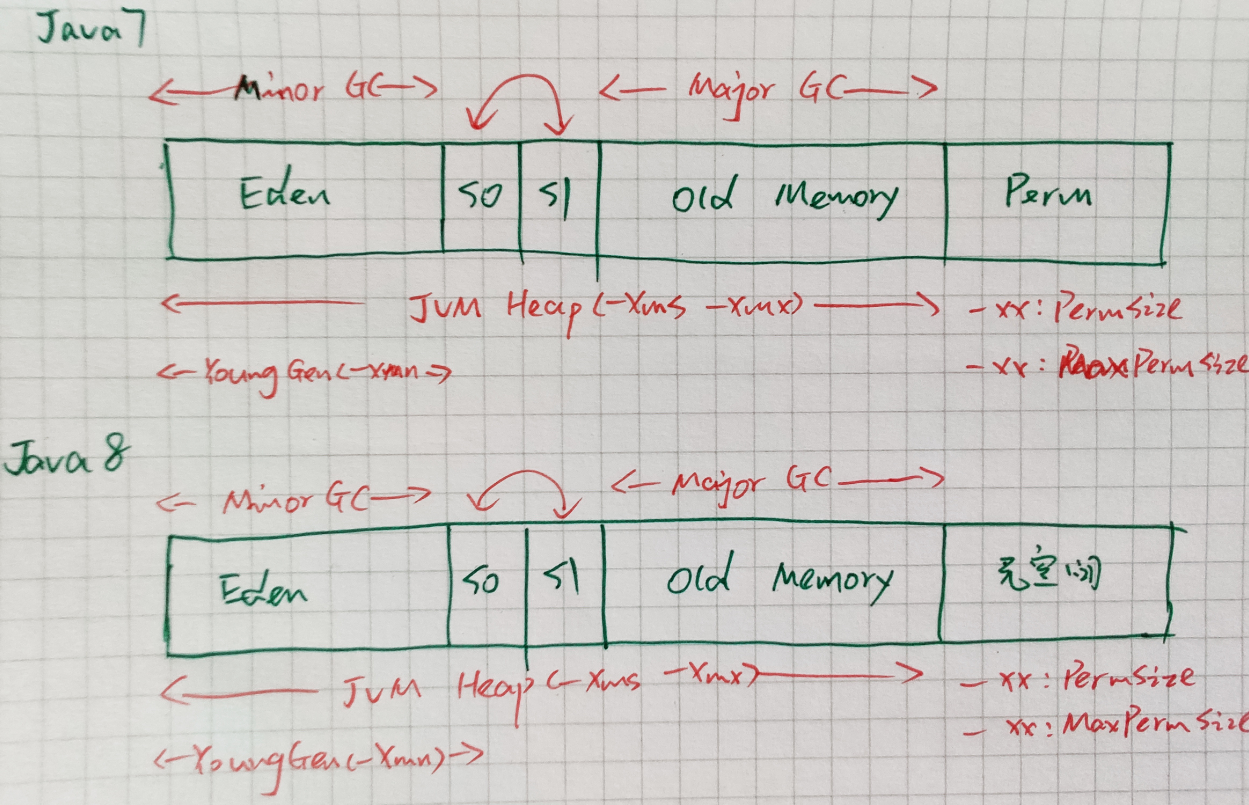 Java7
Minor GC Major GC
Eden S0 S1 Old Memory Perm
JVM Heap (-Xms -Xmx) -xx: PermSize
Young Gen (-xmn -xx: MaxPermSize
Java 8
Minor GC Major GC
Eden S0 S1 Old Memory 元空间
JVM Heap (-Xms -Xmx) -xx: PermSize
Young Gen (-Xmn) -xx: MaxPermSize